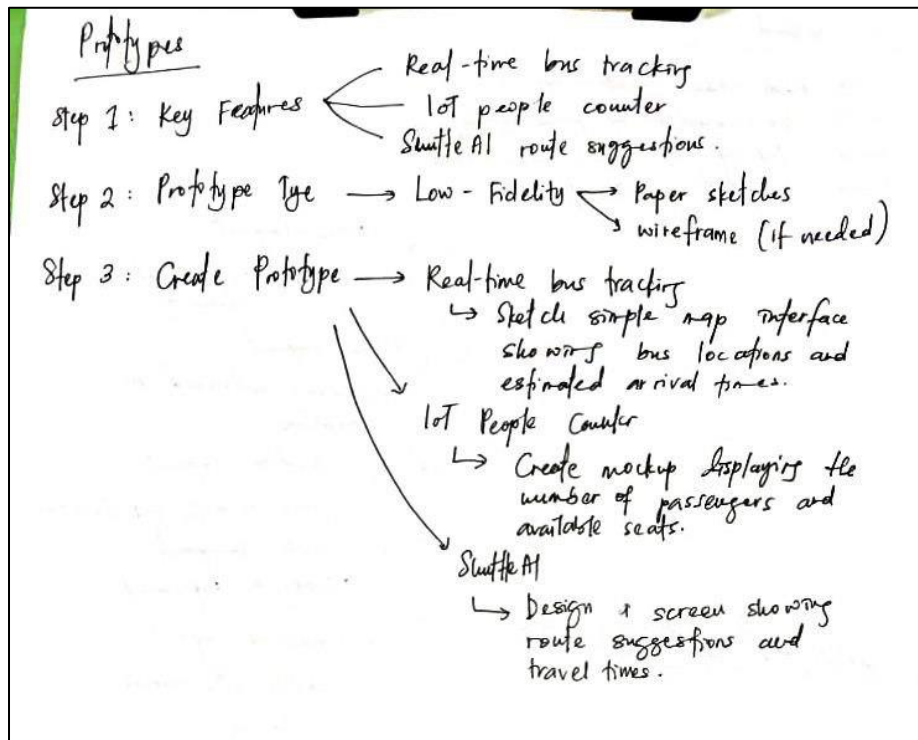 Prototypes
Step 1: Key Features
Real-time bus tracking
IoT people counter
Shuttle AI route suggestions.
Step 2: Prototype Tye → Low-Fidelity → Paper sketches
→ wireframe (if needed)
Step 3: Create Prototype → Real-time bus tracking
↳ Sketch simple map interface
showing bus locations and
estimated arrival times.
IoT People Counter
↳ Create mockup displaying the
number of passengers and
available seats.
Shuttle AI
↳ Design & screen showing
route suggestions and
travel times.